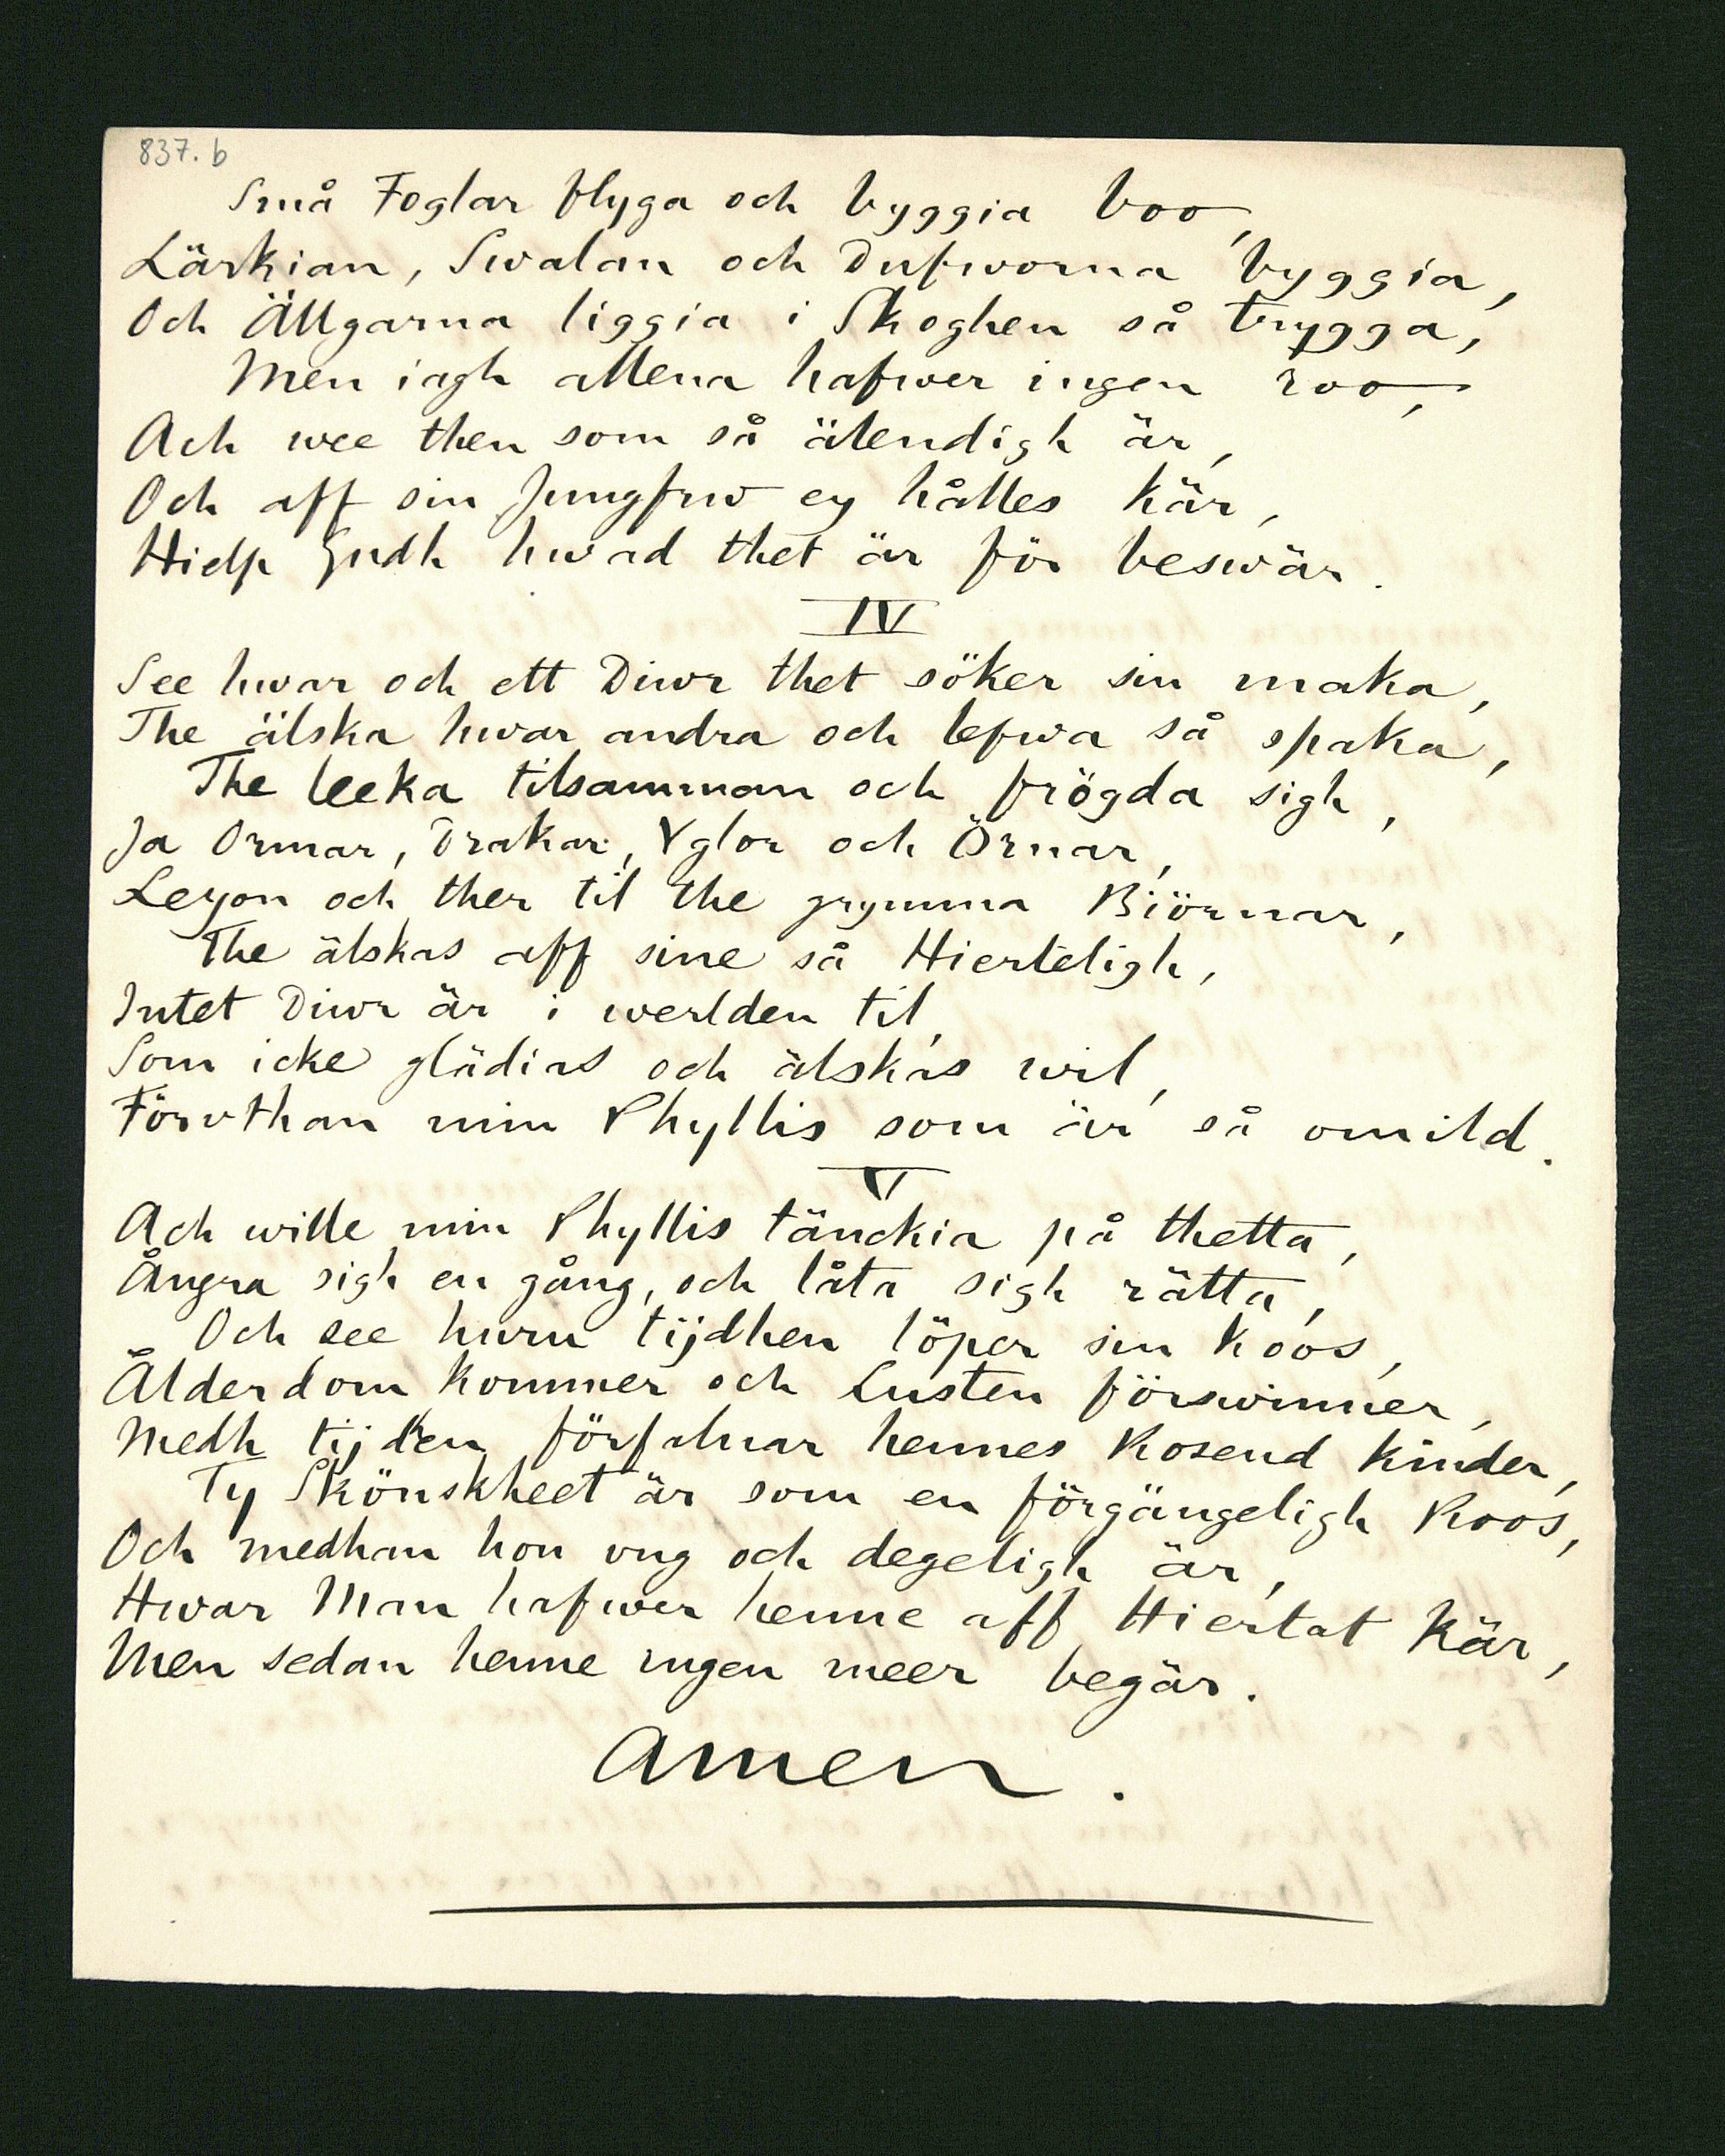 837. b
Små Foglar flyga och byggia boo,
Lärkian, Swalan och Dufworna byggia,
Och Ällgarna liggia i Skoghen så trygga,
Men iagh allena hafwer ingen roo,
Ach wee then som så älendigh är,
Och aff sin Jungfrw ey hålles kär,
Hielp Gudh hwad thet är för beswär.
IV
See hwar och ett Diwr thet söker sin maka,
The älska hwar andra och lefwa så spaka,
The leeka tilsamman och frögda sigh,
Ja Ormar, Drakar, Yglor och Örnar,
Leyon och ther til the grymma Biörnar,
The älskas aff sine så Hierteligh,
Intet Diwr är i werlden til,
Som icke glädias och älskas wil,
Förvthan min Phyllis som är så omild.
V
Ach wille min Phyllis tänckia på thetta,
Ångra sigh en gång, och låta sigh rätta,
Och see hwru tijdhen löper sin koos,
Ålderdom kommer och Lusten förswinner,
Medh tijden förfalnar hennes Rosend kinder,
Ty Skönskheet är som en förgängeligh Roos,
Och medhan hon vng och degeligh är,
Hwar Man hafwer henne aff Hiertat kär,
Men sedan henne ingen meer begär.
Amen.